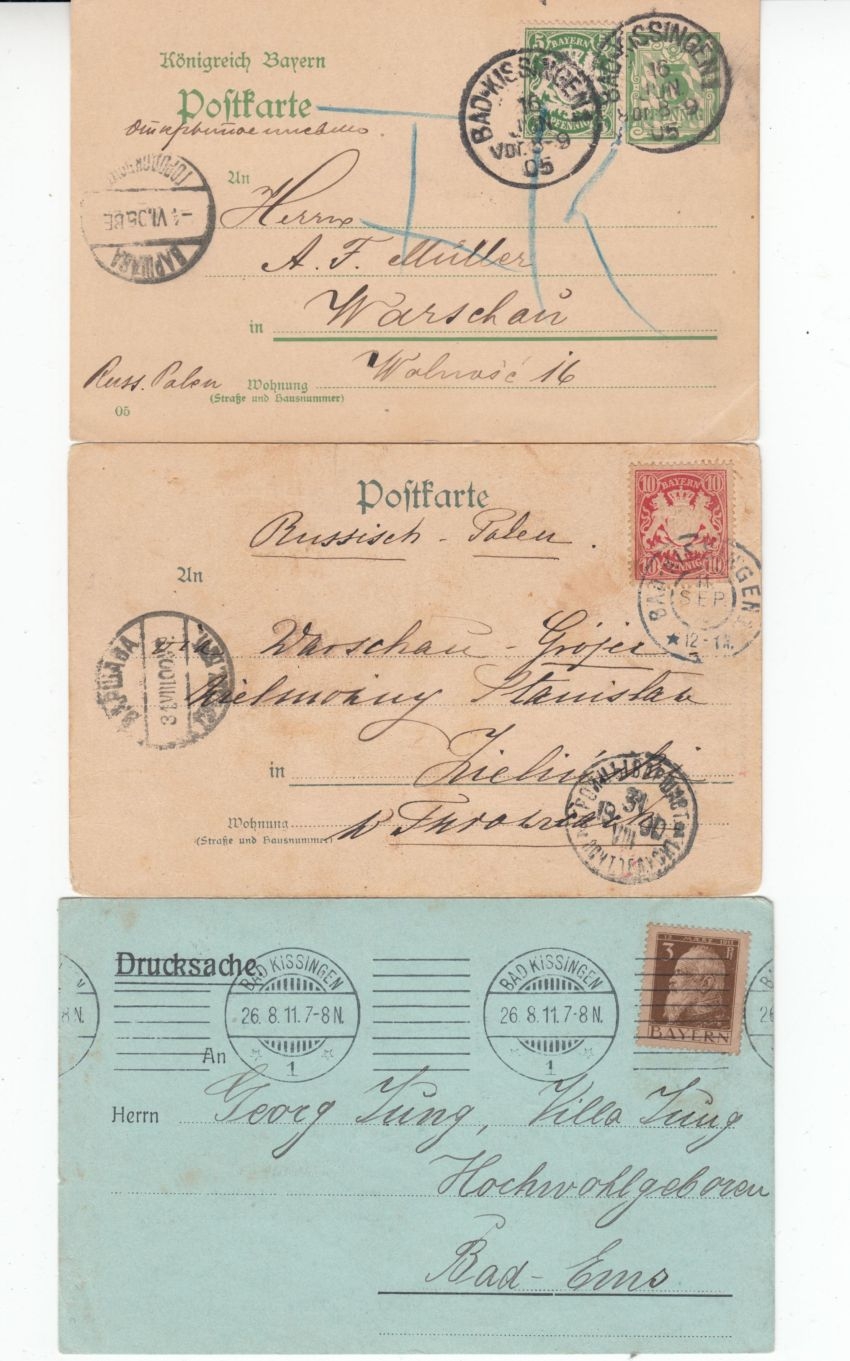 Königreich Bayern
Postkarte
5 BAYERN 5
PFENNIG
BAD-KISSINGEN 1
16
JUN
Vor. 8-9
05
BAD-KISSINGEN 1
16
JUN
Vor. 8-9
05
PFENNIG
Открытое письмо
An
-4 VI.05
ВАРШАВА
Herrn
A. F. Müller
in Warschau
Russ. Polen
Wohnung Wolność 16
(Straße und Hausnummer)
05
Postkarte
10 BAYERN 10
10 PFENNIG 10
Russisch - Polen.
An
SEP.
12-1 N.
via Warschau - Grójec
ВАРШАВА
31 VIII 00
Wielmożny Stanisław
in Zieliński
Wohnung w
(Straße und Hausnummer)
31
VIII
19 00
Drucksache
12. MÄRZ 1911
3 Pf
BAYERN
BAD KISSINGEN
26. 8. 11. 7-8 N.
1
BAD KISSINGEN
26. 8. 11. 7-8 N.
1
8 N.
26
An
Herrn Georg Jung, Villa Jung
Hochwohlgeboren
Bad-Ems